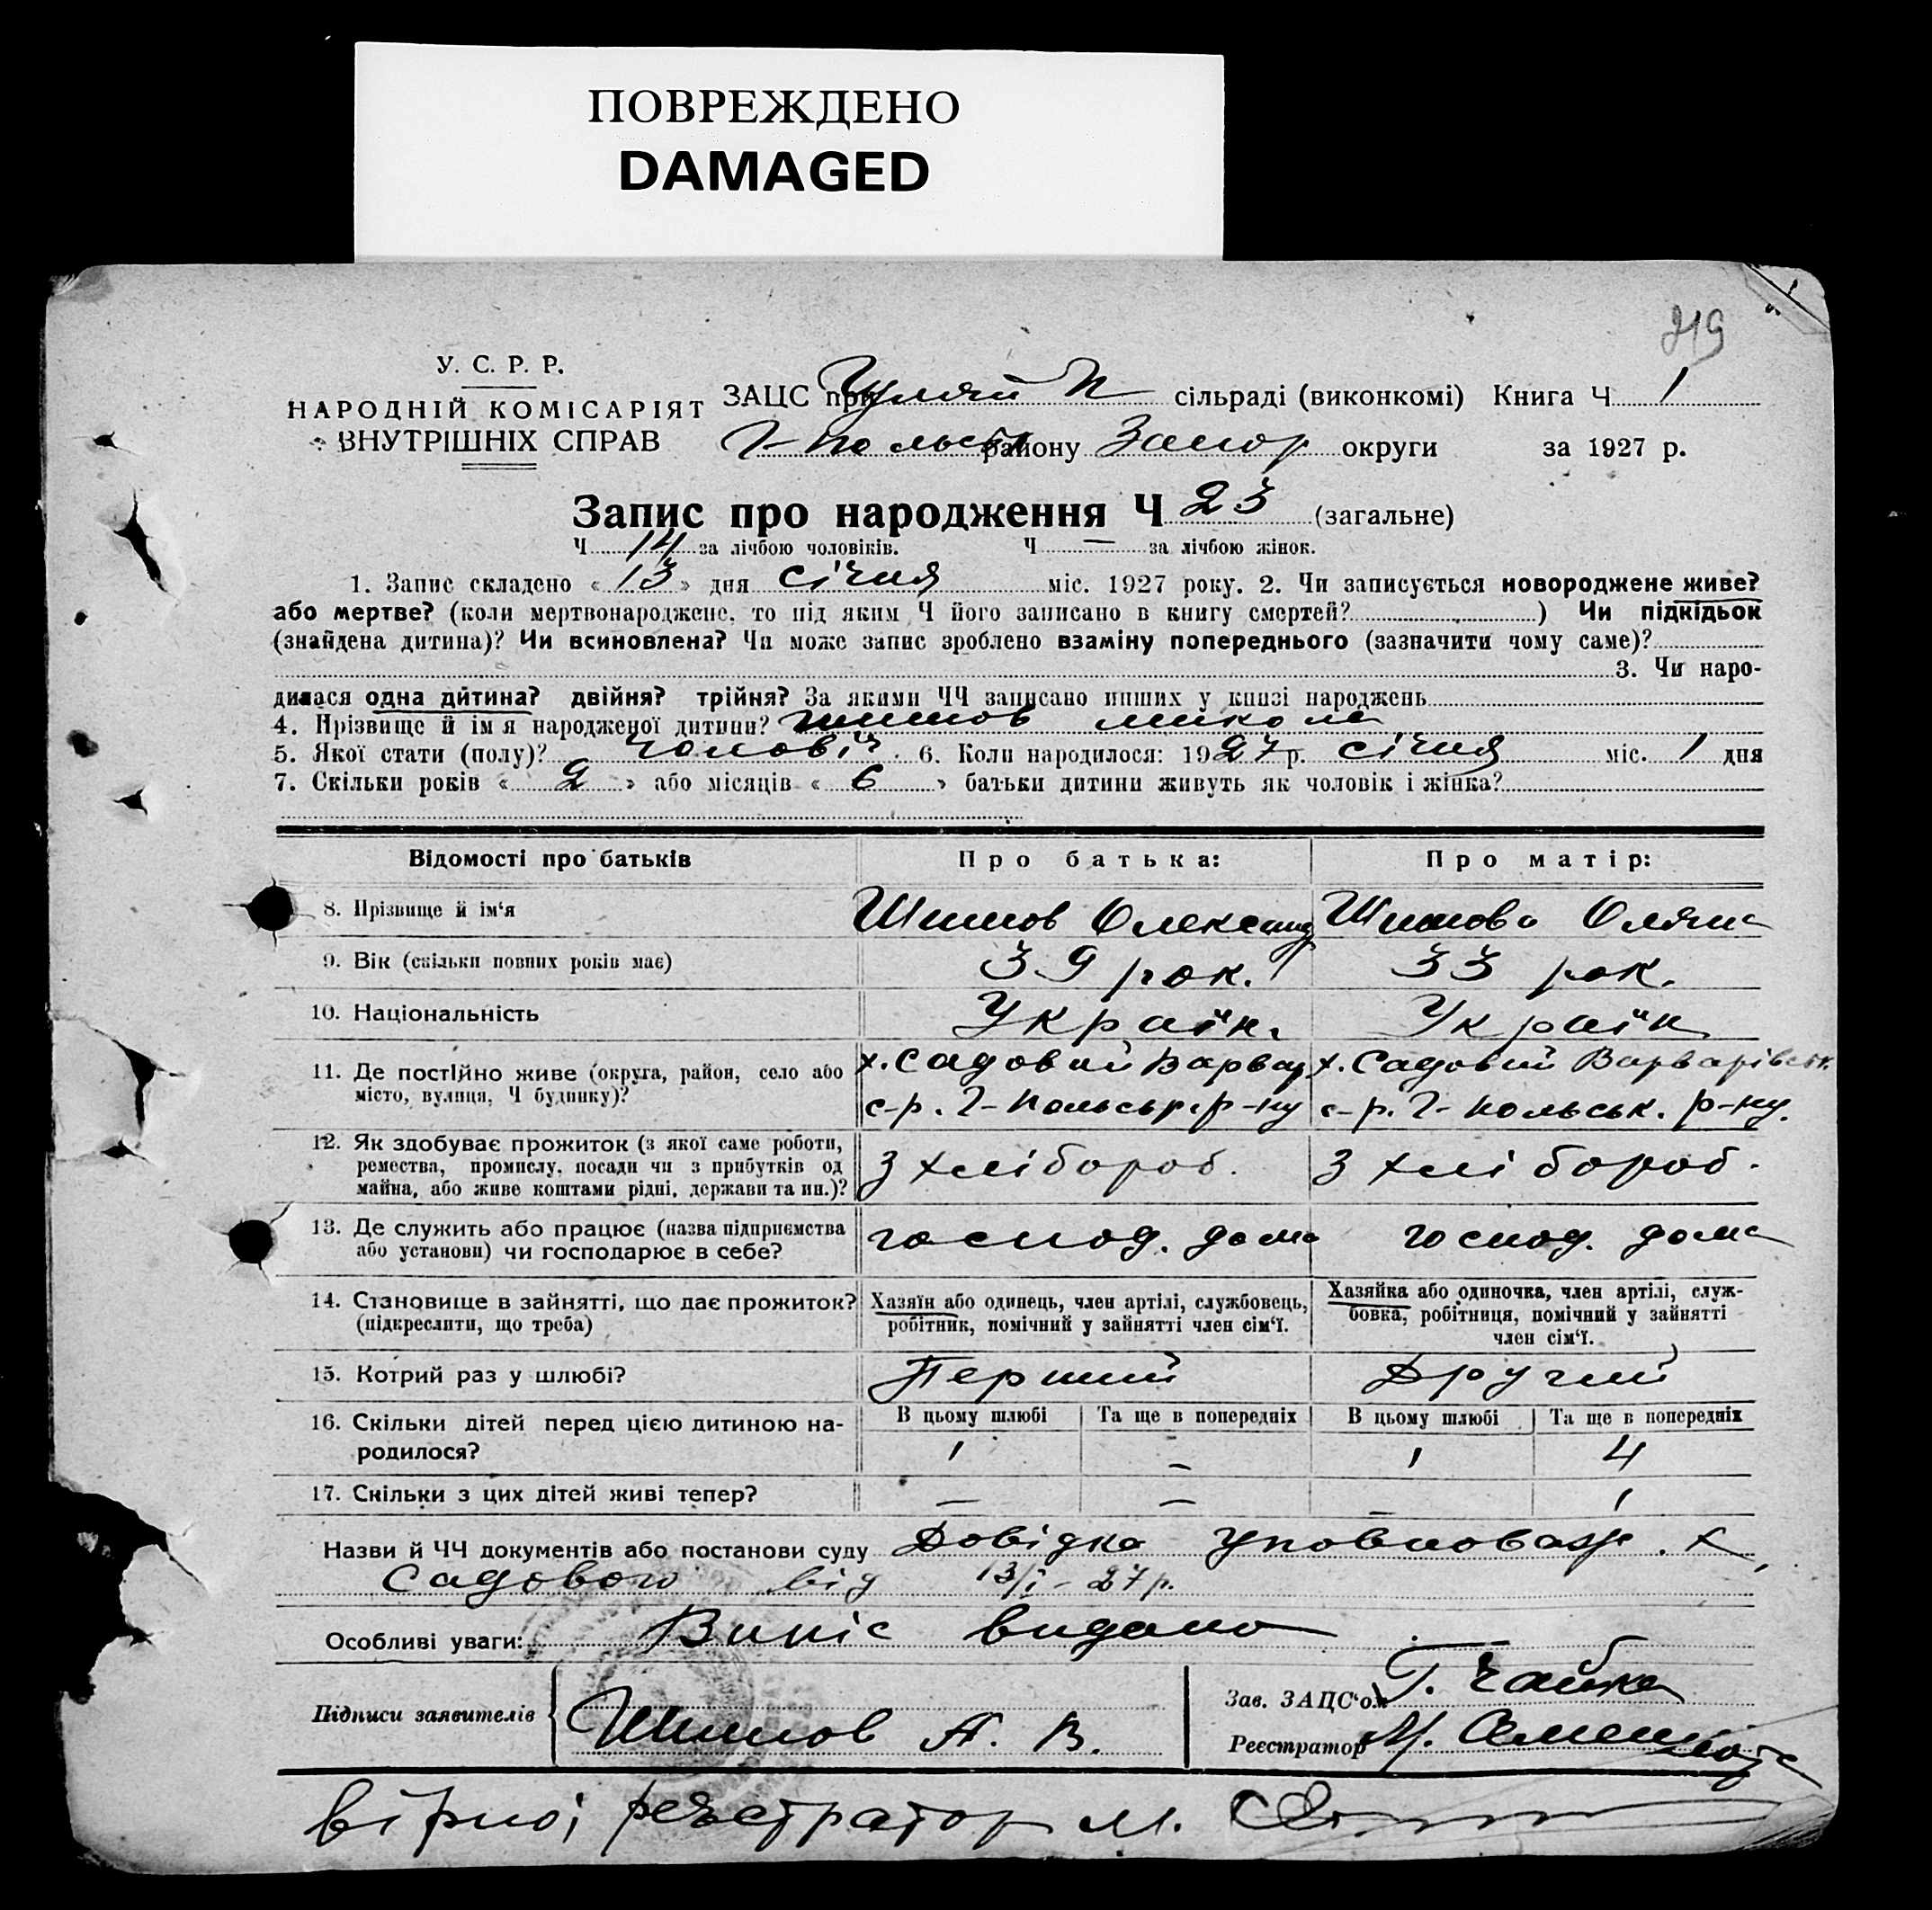 ПОВРЕЖДЕНО
DAMAGED
219
У. С. Р. Р.
НАРОДНІЙ КОМІСАРІЯТ
ВНУТРІШНІХ СПРАВ
ЗАЦС при Гуляй П сільраді (виконкомі) Книга Ч 1
Г-Польськ району Запор округи за 1927 р.
Запис про народження Ч 23 (загальне)
Ч 14 за лічбою чоловіків. Ч — за лічбою жінок.
1. Запис складено « 13 » дня січня міс. 1927 року. 2. Чи записується новороджене живе?
або мертве? (коли мертвонароджене, то під яким Ч його записано в книгу смертей? ) Чи підкідьок
(знайдена дитина)? Чи всиновлена? Чи може запис зроблено взаміну попереднього (зазначити чому саме)?
3. Чи наро-
дилася одна дитина? двійня? трійня? За якими ЧЧ записано инших у книзі народжень
4. Прізвище й імя народженої дитини? Шишов Микола
5. Якої стати (полу)? чоловіч. 6. Коли народилося: 1927 р. січня міс. 1 дня
7. Скільки років « 2 » або місяців « 6 » батьки дитини живуть як чоловік і жінка?
Відомості про батьків Про батька: Про матір:
8. Прізвище й ім'я Шишов Олександ Шишова Оляна
9. Вік (скільки повних років має) 39 рок. 33 рок.
10. Національність Україн. Україн
11. Де постійно живе (округа, район, село або х. Садовий Варвар х. Садовий Варварівськ.
місто, вулиця, Ч будинку)? с-р. Г-Польськ. р-ну с-р. Г-Польськ. р-ну.
12. Як здобуває прожиток (з якої саме роботи,
ремества, промислу, посади чи з прибутків од З хлібороб. З хлібороб.
майна, або живе коштами рідні, держави та ин.)?
13. Де служить або працює (назва підприємства господ. дома господ. дома
або установи) чи господарює в себе?
14. Становище в зайнятті, що дає прожиток? Хазяїн або одинець, член артілі, службовець, Хазяйка або одиночка, член артілі, служ-
(підкреслити, що треба) робітник, помічний у зайнятті член сім'ї. бовка, робітниця, помічний у зайнятті
член сім'ї.
15. Котрий раз у шлюбі? Перший Другий
16. Скільки дітей перед цією дитиною на- В цьому шлюбі Та ще в попередніх В цьому шлюбі Та ще в попередніх
родилося? 1 - 1 4
17. Скільки з цих дітей живі тепер? — — — 1
Назви й ЧЧ документів або постанови суду Довідка уповноваж. х,
Садового від 13/I-27 р.
Особливі уваги: Випіс видано
Підписи заявителів Шишов А. В.
Зав. ЗАЦС'ом Г. Чайка
Реєстратор М.
вірно; реєстратор М.